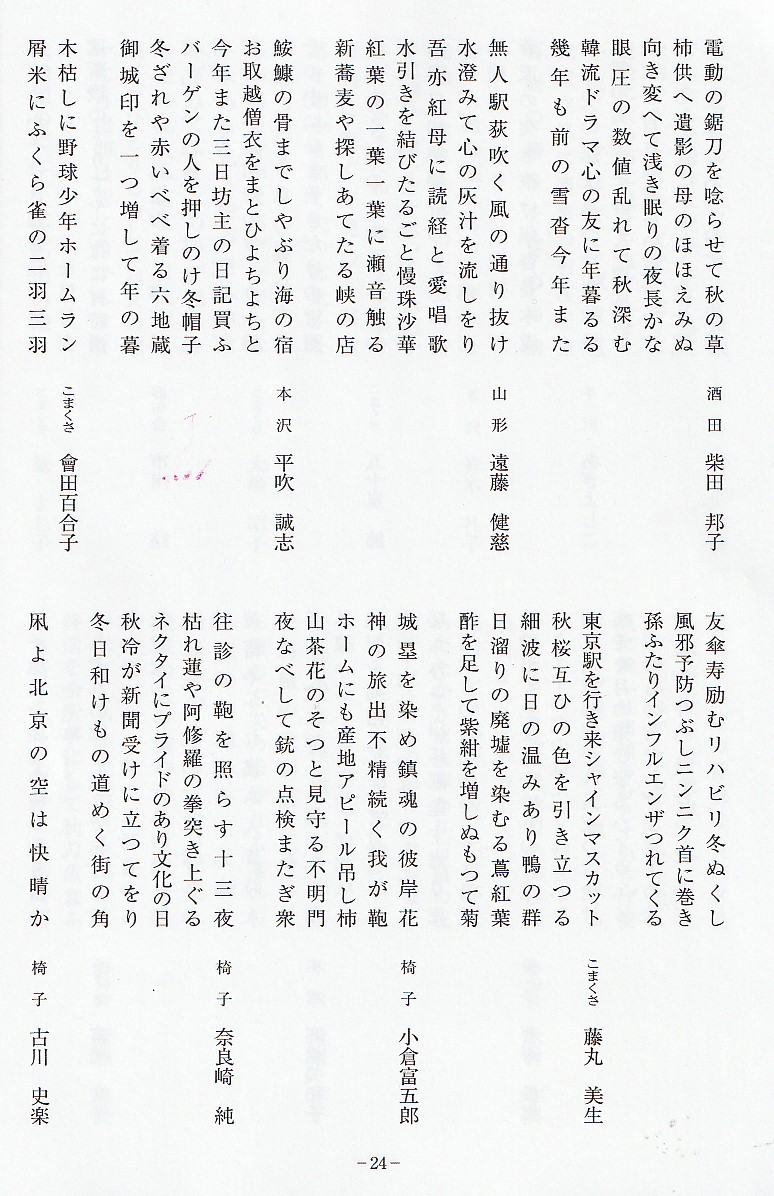 電動の鋸刀を唸らせて秋の草
酒田 柴田 邦子
柿供へ遺影の母のほほえみぬ
向き変へて浅き眠りの夜長かな
眼圧の数値乱れて秋深む
韓流ドラマ心の友に年暮るる
幾年も前の雪沓今年また
無人駅荻吹く風の通り抜け
山形 遠藤 健慈
水澄みて心の灰汁を流しをり
吾亦紅母に読経と愛唱歌
水引きを結びたるごと慢珠沙華
紅葉の一葉一葉に瀬音触る
新蕎麦や探しあてたる峡の店
鮟鱇の骨までしやぶり海の宿
本沢 平吹 誠志
お取越僧衣をまとひよちよちと
今年また三日坊主の日記買ふ
バーゲンの人を押しのけ冬帽子
冬ざれや赤いべべ着る六地蔵
御城印を一つ増して年の暮
木枯しに野球少年ホームラン
こまくさ 會田百合子
屑米にふくら雀の二羽三羽
友傘寿励むリハビリ冬ぬくし
風邪予防つぶしニンニク首に巻き
孫ふたりインフルエンザつれてくる
東京駅を行き来シャインマスカット
こまくさ 藤丸 美生
秋桜互ひの色を引き立つる
細波に日の温みあり鴨の群
日溜りの廃墟を染むる蔦紅葉
酢を足して紫紺を増しぬもつて菊
城塁を染め鎮魂の彼岸花
椅子 小倉富五郎
神の旅出不精続く我が鞄
ホムにも産地アピール吊し柿
山茶花のそつと見守る不明門
夜なべして銃の点検またぎ衆
往診の鞄を照らす十三夜
椅子 奈良崎 純
枯れ蓮や阿修羅の拳突き上ぐる
ネクタイにプライドのあり文化の日
秋冷が新聞受けに立つてをり
冬日和けもの道めく街の角
凩よ北京の空は快晴か
椅子 古川 史楽
－24－